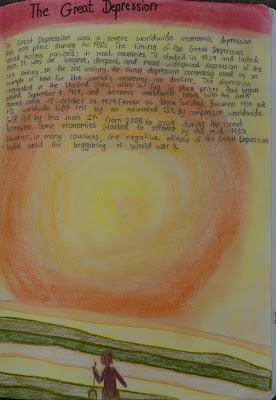 The Great Depression
The Great Depression was a severe worldwide economic depression
took place during the 1930s. The timing of the Great Depression
varied across nations; in most countries it started in 1929 and lasted
It was the longest, deepest, and most widespread depression of the
20th century. In the 21st century, the Great depression commonly used as an
example of how far the world's economy can decline. The depression
originated in the United States, after a fall in stock prices that began
around September 4, 1929, and became worldwide news with the stock
market crash of October 29, 1929 (known as Black Tuesday). Between 1929 and
1932 worldwide GDP fell by an estimated 15%. By comparison, worldwide
GDP fell by less than 1% from 2008 to 2009 during the Great
Recession. Some economies started to recover by the mid-1930s.
However, in many countries, the negative effects of the Great Depression
lasted until the beggining of World War II.